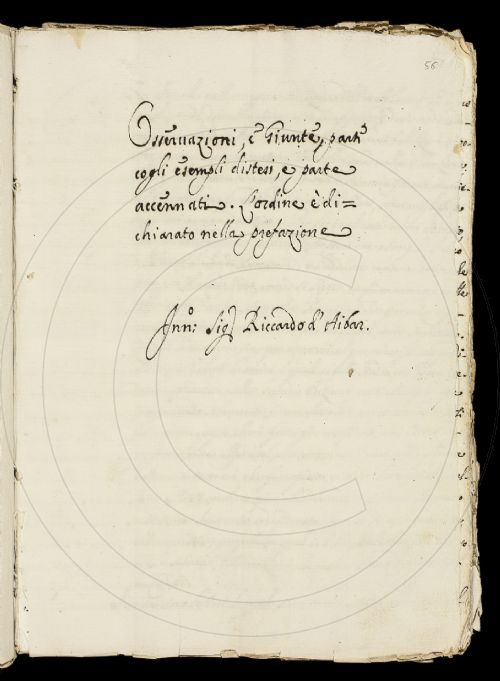 56
Osseruazioni, e Giunte, parte
cogli esempli distesi, e parte
accennati. L'ordine è di=
chiarato nella prefazione
Inno: Sig. Riccardo d' Aibar.